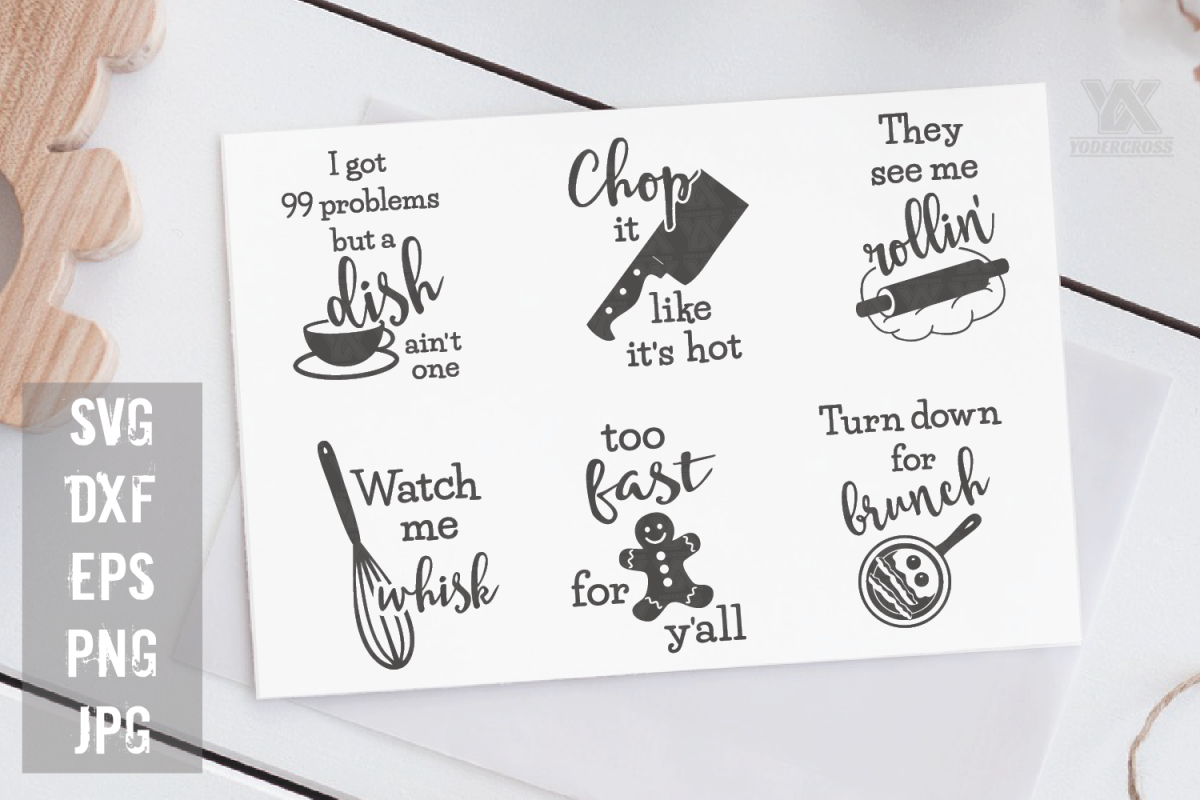 I got
99 problems
but a
dish
ain't
one
Chop
it
like
it's hot
They
see me
rollin'
Watch
me
whisk
too
fast
for
y'all
Turn down
for
brunch
SVG
DXF
EPS
PNG
JPG
YX
YODERCROSS